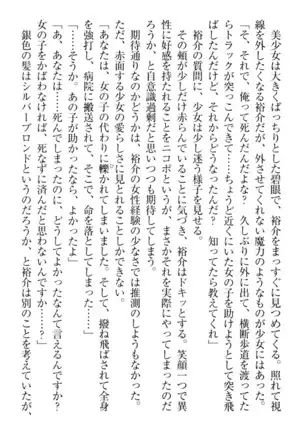 美少女は大きくぱっちりとした碧眼で、裕介をまっすぐに見つめてくる。照れて視
線を外したくなる裕介だが、外させてくれない魔力のようなものが少女にはあった。
「そ、それで、俺って死んだんだよな？　久しぶりに外に出て、横断歩道を渡ってた
らトラックが突っこんできて……ちょうど近くにいた女の子を助けようとして突き飛
ばしたけど、それからどうなったんだ？　知ってたら教えてくれ」
裕介の質問に、少女は少し迷う様子を見せる。
その頬が少しだけ赤らんでいることに気づき、裕介はドキッとする。笑顔一つで異
性に好感を持たれることをニコポというが、まさかそれを実際にやってしまったのだ
ろうか、と自意識過剰だと思いつつも期待してしまう。
期待通りなのかどうかは、裕介の女性経験の少なさでは推測のしようもなかった。
ただ、赤面する少女の愛らしさに見とれることしかできない。
「あなたは、女の子の代わりに轢かれてしまいました。そして、撥ね飛ばされて全身
を強打し、病院に搬送されて、そこで、命を落としてしまった……」
「……そうか。あの子が助かったなら、よかったよ」
「あ、あなたは……死んでしまったのに、どうしてよかったなんて言えるんですか？
女の子をかばわなければ、死なずに済んだと思わないんですか？」
銀色の髪はシルバーブロンドというのだろうか、と裕介は別のことを考えていたが、